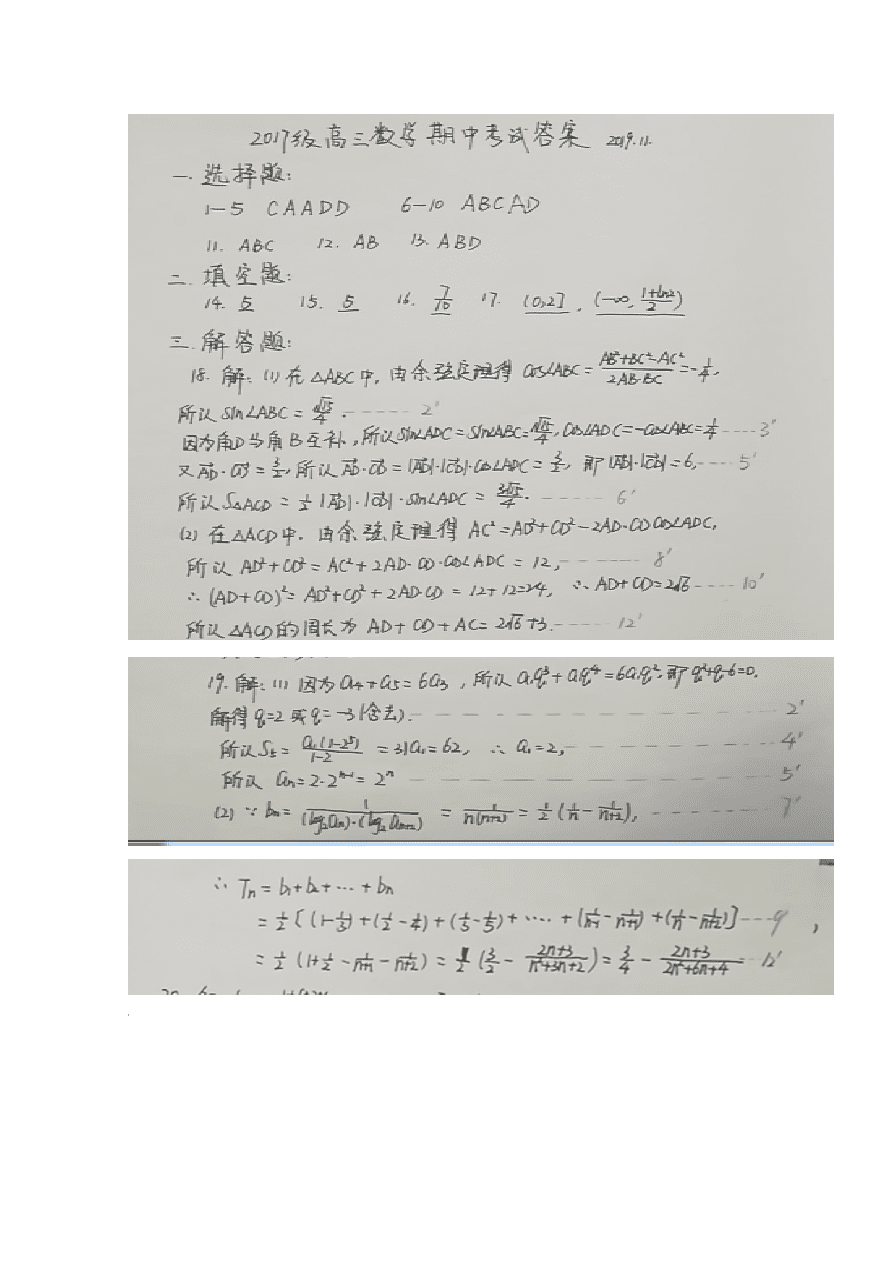 2017级高三数学期中考试答案 2019.11.
一. 选择题:
1-5 CAADD 6-10 ABCAD
11. ABC 12. AB 13. ABD
二. 填空题:
14. 5 15. 5 16. 7/10 17. (0,2] , (-∞, (1+ln2)/2)
三. 解答题:
18. 解: (1) 在△ABC中, 由余弦定理得 cos∠ABC = (AB²+BC²-AC²)/(2AB·BC) = -1/4,
所以 sin∠ABC = √15/4 . ----- 2'
因为角D与角B互补, 所以sin∠ADC = sin∠ABC = √15/4, cos∠ADC = -cos∠ABC = 1/4 ---- 3'
又AD·CD = 3/2, 所以AD·CD = |AD|·|CD|·cos∠ADC = 3/2, 即|AD|·|CD| = 6, ---- 5'
所以 S△ACD = 1/2 |AD|·|CD|·sin∠ADC = 3√15/4. ----- 6'
(2) 在△ACD中, 由余弦定理得 AC² = AD²+CD²-2AD·CD cos∠ADC,
所以 AD²+CD² = AC²+2AD·CD·cos∠ADC = 12, ------ 8'
∴ (AD+CD)² = AD²+CD²+2AD·CD = 12+12=24, ∴ AD+CD=2√6 ---- 10'
所以△ACD的周长为 AD+CD+AC= 2√6+3. ---- 12'
19. 解: (1) 因为 a₄+a₅=6a₃, 所以 a₁q³+a₁q⁴=6a₁q², 即 q²+q-6=0.
解得 q=2 或 q=-3(舍去). ---- 2'
所以 S₅ = a₁(1-2⁵)/(1-2) = 31a₁ = 62, ∴ a₁=2, ---- 4'
所以 aₙ = 2·2ⁿ⁻¹ = 2ⁿ ---- 5'
(2) ∵ bₙ = 1/((log₂aₙ)·(log₂aₙ₊₂)) = 1/(n(n+2)) = 1/2 (1/n - 1/(n+2)), ---- 7'
∴ Tₙ = b₁+b₂+⋯+bₙ
= 1/2 [(1-1/3)+(1/2-1/4)+(1/3-1/5)+⋯⋯+(1/(n-1)-1/(n+1))+(1/n-1/(n+2))] --- 9' ,
= 1/2 (1+1/2-1/(n+1)-1/(n+2)) = 1/2 (3/2 - (2n+3)/(n²+3n+2)) = 3/4 - (2n+3)/(2n²+6n+4) -- 12'